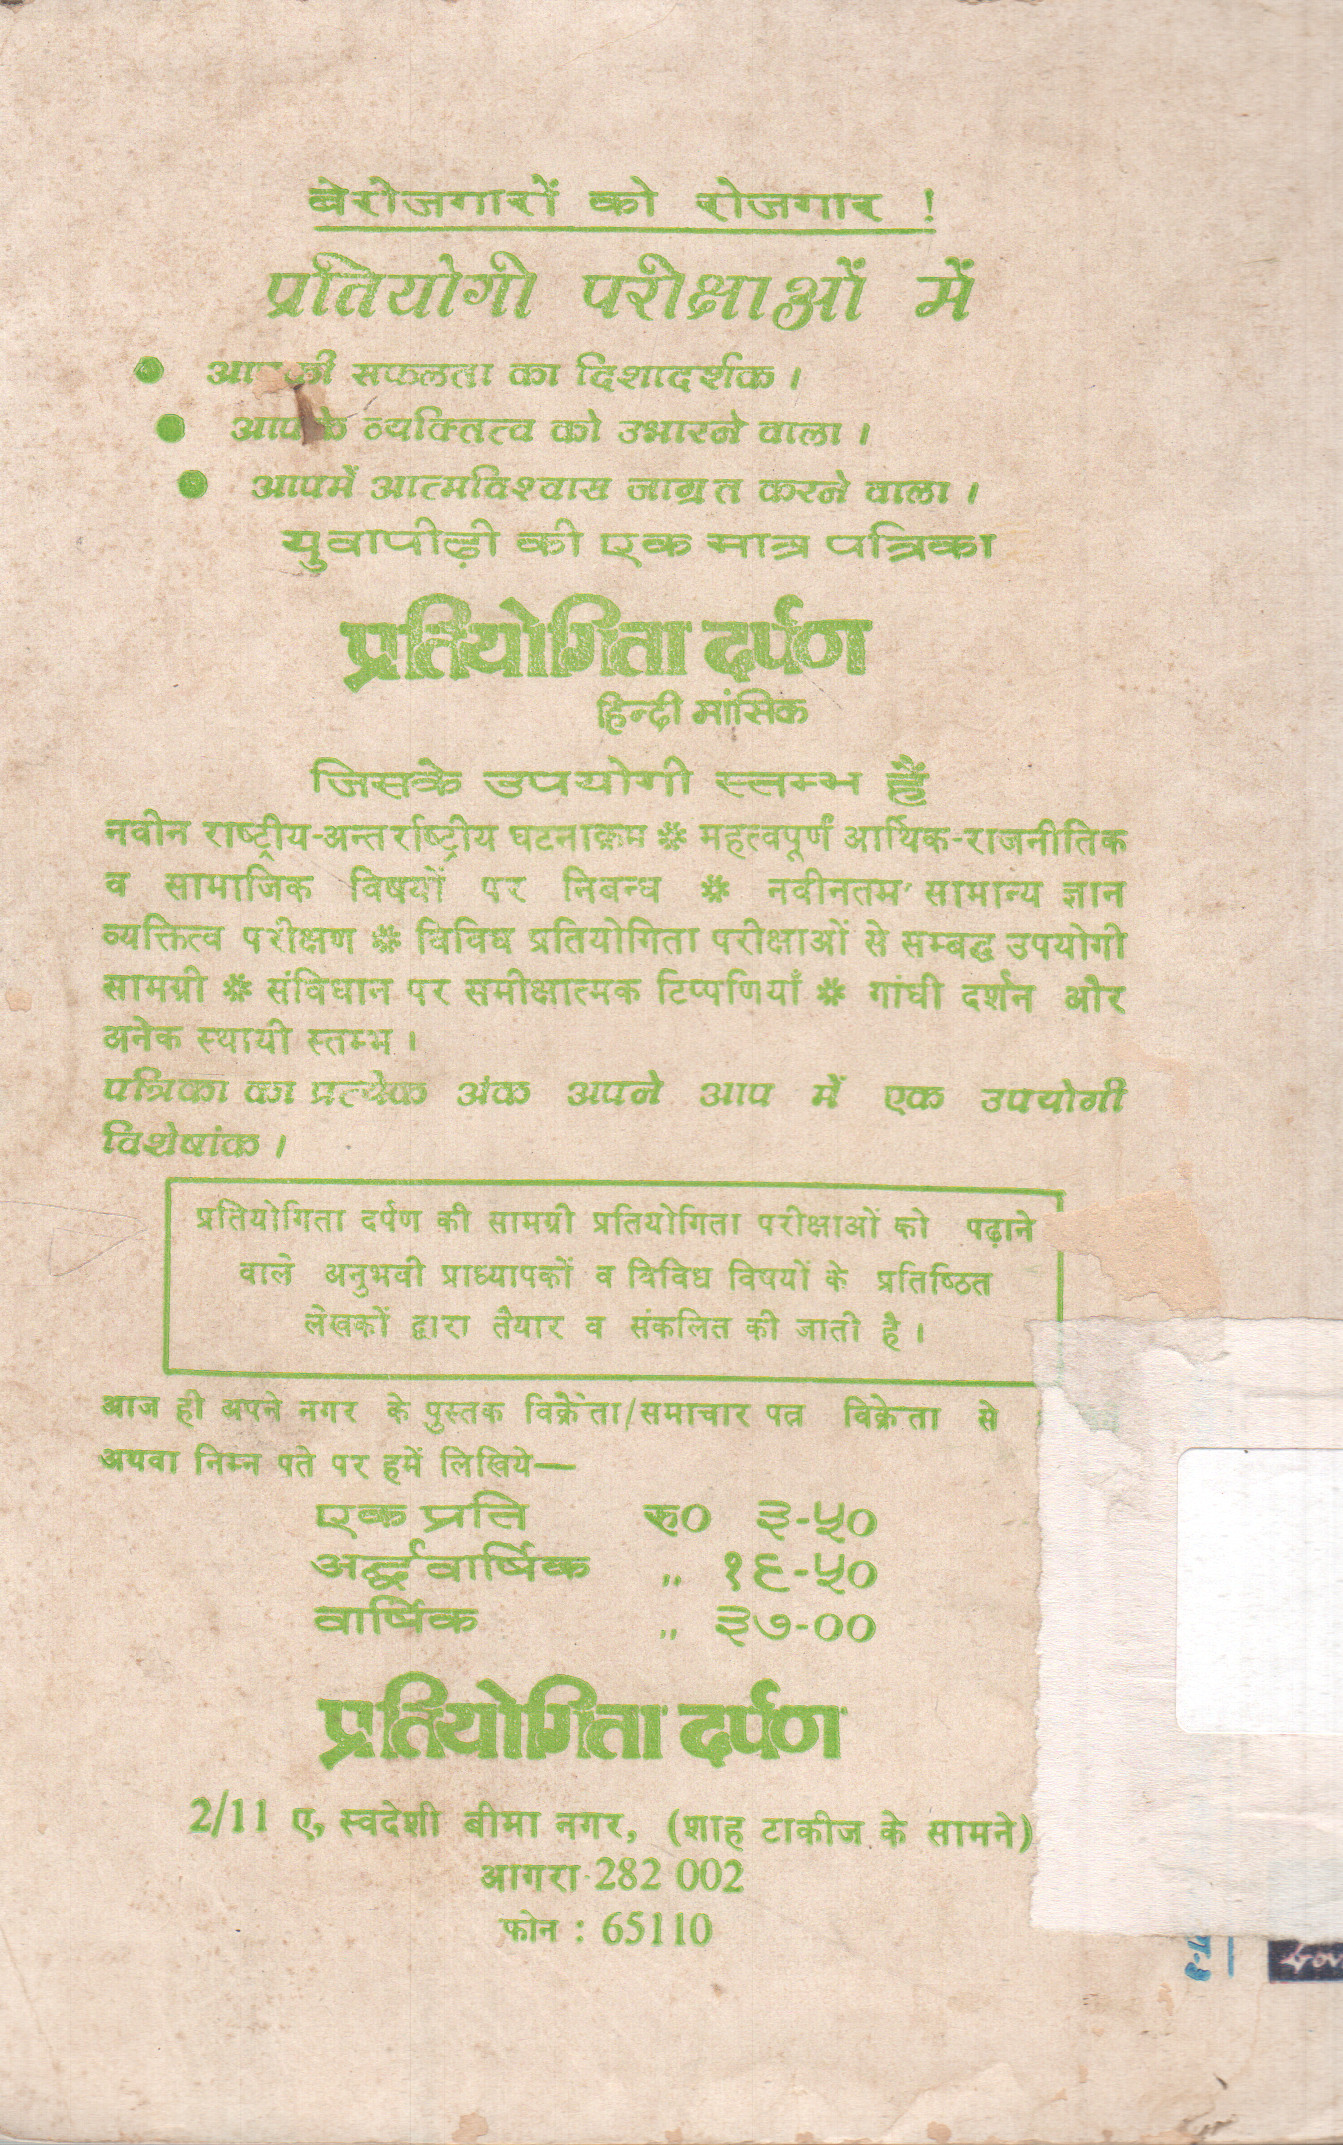 बेरोजगारों को रोजगार !
प्रतियोगी परीक्षाओं में
● आपकी सफलता का दिशादर्शक ।
● आपके व्यक्तित्व को उभारने वाला ।
● आपमें आत्मविश्वास जाग्रत करने वाला ।
युवापीढ़ी की एक मात्र पत्रिका
प्रतियोगिता दर्पण
हिन्दी मासिक
जिसके उपयोगी स्तम्भ हैं
नवीन राष्ट्रीय-अन्तर्राष्ट्रीय घटनाक्रम ❉ महत्वपूर्ण आर्थिक-राजनीतिक
व सामाजिक विषयों पर निबन्ध ❉ नवीनतम सामान्य ज्ञान
व्यक्तित्व परीक्षण ❉ विविध प्रतियोगिता परीक्षाओं से सम्बद्ध उपयोगी
सामग्री ❉ संविधान पर समीक्षात्मक टिप्पणियाँ ❉ गांधी दर्शन और
अनेक स्थायी स्तम्भ ।
पत्रिका का प्रत्येक अंक अपने आप में एक उपयोगी
विशेषांक ।
प्रतियोगिता दर्पण की सामग्री प्रतियोगिता परीक्षाओं को पढ़ाने
वाले अनुभवी प्राध्यापकों व विविध विषयों के प्रतिष्ठित
लेखकों द्वारा तैयार व संकलित की जाती है ।
आज ही अपने नगर के पुस्तक विक्रेता/समाचार पत्र विक्रेता से
अथवा निम्न पते पर हमें लिखिये—
एक प्रति रु० ३-५०
अर्द्धवार्षिक ,, १९-५०
वार्षिक ,, ३७-००
प्रतियोगिता दर्पण
2/11 ए, स्वदेशी बीमा नगर, (शाह टाकीज के सामने)
आगरा-282 002
फोन : 65110